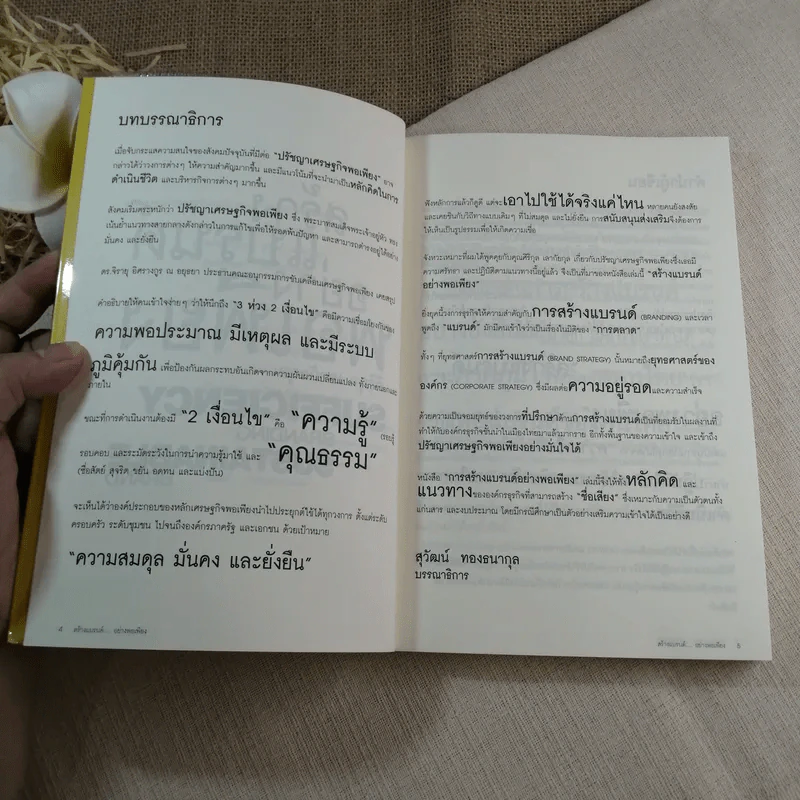 บทบรรณาธิการ
เมื่อจับกระแสความสนใจของสังคมปัจจุบันที่มีต่อ "ปรัชญาเศรษฐกิจพอเพียง" อาจ
กล่าวได้ว่าวงการต่างๆ ให้ความสำคัญมากขึ้น และมีแนวโน้มที่จะนำมาเป็นหลักคิดในการ
ดำเนินชีวิต และบริหารกิจการต่างๆ มากขึ้น
สังคมเริ่มตระหนักว่า ปรัชญาเศรษฐกิจพอเพียง ซึ่ง พระบาทสมเด็จพระเจ้าอยู่หัว ทรง
เน้นย้ำแนวทางสายกลางดังกล่าวในการแก้ไขเพื่อให้รอดพ้นปัญหา และสามารถดำรงอยู่ได้อย่าง
มั่นคง และยั่งยืน
ดร.จิรายุ อิศรางกูร ณ อยุธยา ประธานคณะอนุกรรมการขับเคลื่อนเศรษฐกิจพอเพียง เคยสรุป
คำอธิบายให้คนเข้าใจง่ายๆ ว่าให้นึกถึง "3 ห่วง 2 เงื่อนไข" คือมีความเชื่อมโยงกันของ
ความพอประมาณ มีเหตุผล และมีระบบ
ภูมิคุ้มกัน เพื่อป้องกันผลกระทบอันเกิดจากความผันผวนเปลี่ยนแปลง ทั้งภายนอกและ
ภายใน
ขณะที่การดำเนินงานต้องมี "2 เงื่อนไข" คือ "ความรู้" (รอบรู้
รอบคอบ และระมัดระวังในการนำความรู้มาใช้ และ "คุณธรรม"
(ซื่อสัตย์ สุจริต ขยัน อดทน และแบ่งปัน)
จะเห็นได้ว่าองค์ประกอบของหลักเศรษฐกิจพอเพียงนำไปประยุกต์ใช้ได้ทุกวงการ ตั้งแต่ระดับ
ครอบครัว ระดับชุมชน ไปจนถึงองค์กรภาครัฐ และเอกชน ด้วยเป้าหมาย
"ความสมดุล มั่นคง และยั่งยืน"
4 สร้างแบรนด์... อย่างพอเพียง
ฟังหลักการแล้วก็ดูดี แต่จะเอาไปใช้ได้จริงแค่ไหน หลายคนยังสงสัย
และเคยชินกับวิถีทางแบบเดิมๆ ที่ไม่สมดุล และไม่ยั่งยืน การสนับสนุนส่งเสริมจึงต้องการ
ให้เห็นเป็นรูปธรรมเพื่อให้เกิดความเชื่อ
จังหวะเหมาะที่ผมได้พูดคุยกับคุณศิริกุล เลากัยกุล เกี่ยวกับปรัชญาเศรษฐกิจพอเพียงซึ่งเธอมี
ความศรัทธา และปฏิบัติตามแนวทางนี้อยู่แล้ว จึงเป็นที่มาของหนังสือเล่มนี้ "สร้างแบรนด์
อย่างพอเพียง"
ยิ่งยุคนี้วงการธุรกิจให้ความสำคัญกับการสร้างแบรนด์ (BRANDING) และเวลา
พูดถึง "แบรนด์" มักมีคนเข้าใจว่าเป็นเรื่องในมิติของ "การตลาด"
ทั้งๆ ที่ยุทธศาสตร์การสร้างแบรนด์ (BRAND STRATEGY) นั้นหมายถึงยุทธศาสตร์ของ
องค์กร (CORPORATE STRATEGY) ซึ่งมีผลต่อความอยู่รอดและความสำเร็จ
ด้วยความเป็นจอมยุทธ์ของวงการที่ปรึกษาด้านการสร้างแบรนด์เป็นที่ยอมรับในผลงานที่
ทำให้กับองค์กรธุรกิจชั้นนำในเมืองไทยมาแล้วมากราย อีกทั้งพื้นฐานของความเข้าใจ และเข้าถึง
ปรัชญาเศรษฐกิจพอเพียงอย่างมั่นใจได้
หนังสือ "การสร้างแบรนด์อย่างพอเพียง" เล่มนี้จึงให้ทั้งหลักคิด และ
แนวทางขององค์กรธุรกิจที่สามารถสร้าง "ชื่อเสียง" ซึ่งเหมาะกับความเป็นตัวตนทั้ง
แก่นสาร และงบประมาณ โดยมีกรณีศึกษาเป็นตัวอย่างเสริมความเข้าใจได้เป็นอย่างดี
สุวัฒน์ ทองธนากุล
บรรณาธิการ
สร้างแบรนด์... อย่างพอเพียง 5